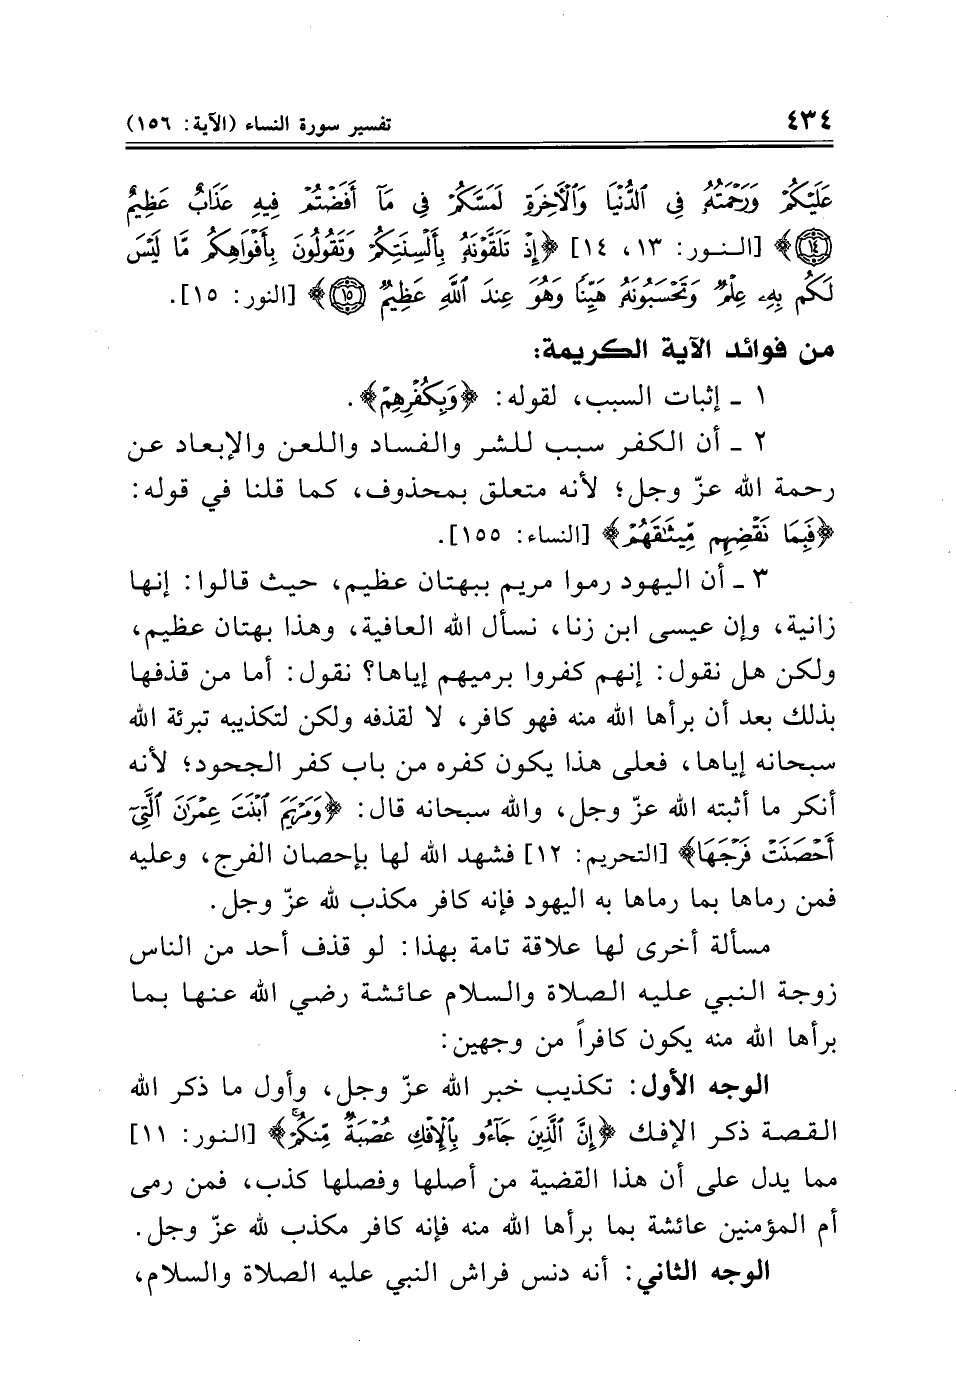 ٤٣٤
تفسير سورة النساء (الآية: ١٥٦)
عَلَيْكُمْ وَرَحْمَتُهُۥ فِى ٱلدُّنْيَا وَٱلْأَخِرَةِ لَمَسَّكُمْ فِى مَآ أَفَضْتُمْ فِيهِ عَذَابٌ عَظِيمٌ
١٤﴾ [النور: ١٣، ١٤] ﴿إِذْ تَلَقَّوْنَهُۥ بِأَلْسِنَتِكُمْ وَتَقُولُونَ بِأَفْوَاهِكُم مَّا لَيْسَ
لَكُم بِهِۦ عِلْمٌ وَتَحْسَبُونَهُۥ هَيِّنًا وَهُوَ عِندَ ٱللَّهِ عَظِيمٌ ١٥﴾ [النور: ١٥].
من فوائد الآية الكريمة:
١ ـ إثبات السبب، لقوله: ﴿وَبِكُفْرِهِمْ﴾.
٢ ـ أن الكفر سبب للشر والفساد واللعن والإبعاد عن
رحمة الله عزّ وجل؛ لأنه متعلق بمحذوف، كما قلنا في قوله:
﴿فَبِمَا نَقْضِهِم مِّيثَٰقَهُمْ﴾ [النساء: ١٥٥].
٣ ـ أن اليهود رموا مريم ببهتان عظيم، حيث قالوا: إنها
زانية، وإن عيسى ابن زنا، نسأل الله العافية، وهذا بهتان عظيم،
ولكن هل نقول: إنهم كفروا برميهم إياها؟ نقول: أما من قذفها
بذلك بعد أن برأها الله منه فهو كافر، لا لقذفه ولكن لتكذيبه تبرئة الله
سبحانه إياها، فعلى هذا يكون كفره من باب كفر الجحود؛ لأنه
أنكر ما أثبته الله عزّ وجل، والله سبحانه قال: ﴿وَمَرْيَمَ ٱبْنَتَ عِمْرَٰنَ ٱلَّتِىٓ
أَحْصَنَتْ فَرْجَهَا﴾ [التحريم: ١٢] فشهد الله لها بإحصان الفرج، وعليه
فمن رماها بما رماها به اليهود فإنه كافر مكذب لله عزّ وجل.
مسألة أخرى لها علاقة تامة بهذا: لو قذف أحد من الناس
زوجة النبي عليه الصلاة والسلام عائشة رضي الله عنها بما
برأها الله منه يكون كافراً من وجهين:
الوجه الأول: تكذيب خبر الله عزّ وجل، وأول ما ذكر الله
القصة ذكر الإفك ﴿إِنَّ ٱلَّذِينَ جَآءُو بِٱلْإِفْكِ عُصْبَةٌ مِّنكُمْ﴾ [النور: ١١]
مما يدل على أن هذا القضية من أصلها وفصلها كذب، فمن رمى
أم المؤمنين عائشة بما برأها الله منه فإنه كافر مكذب لله عزّ وجل.
الوجه الثاني: أنه دنس فراش النبي عليه الصلاة والسلام،